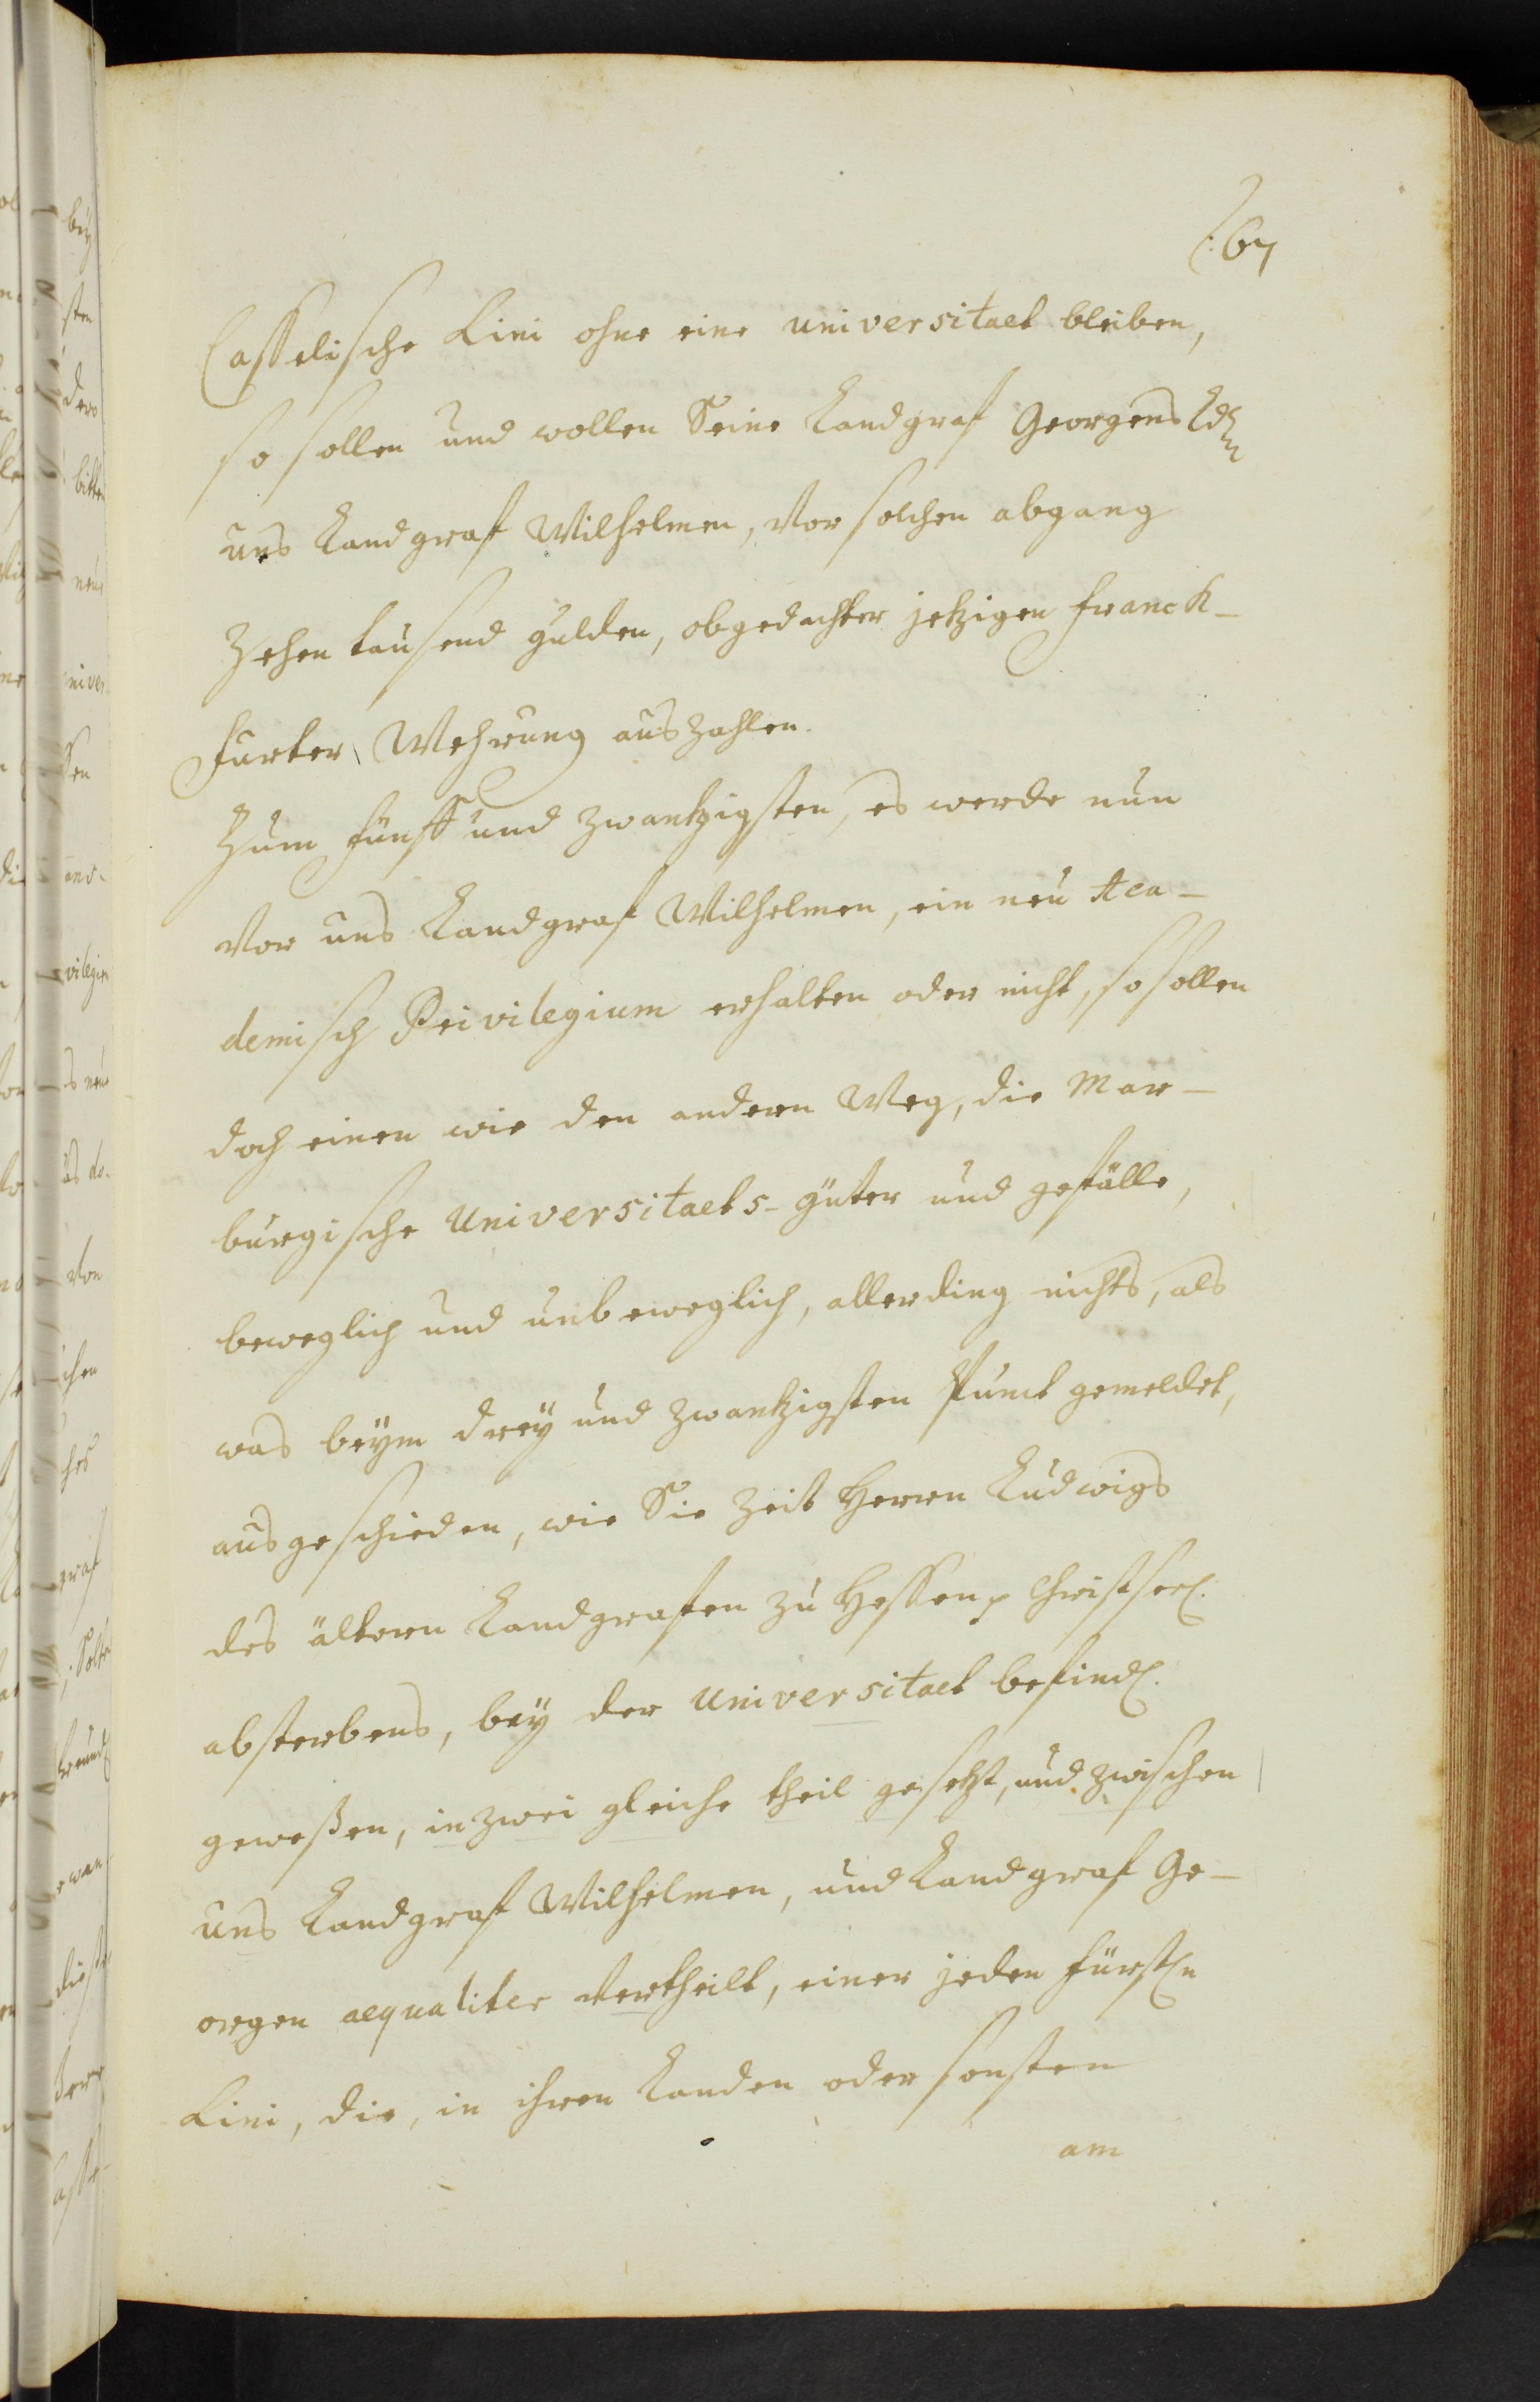 67
Casselische Lini ohne eine universitaet bleiben,
so sollen und wollen Seine Landgraf Georgens Ldn
uns Landgraf Wilhelmen, vor solchen abgang
Zehen tausend gulden, obgedachter jetzigen franck-
furter Wehrung auszahlen.
Zum fünff und zwantzigsten, es werde nun
vor uns Landgraf Wilhelmen, ein neu Aca-
demisch Privilegium erhalten oder nicht, so sollen
doch einen wie den andern Weg, die Mar-
burgische Universitaets-güter und gefälle,
beweglich und unbeweglich, allerding nichts, als
was beym drey und zwantzigsten Punct gemeldet,
ausgeschieden, wie Sie Zeit Herrn Ludwigs
des ältern Landgrafen zu Hessen p Christseel.
absterbens, bey der Universitaet befindl.
geweßen, in zwei gleiche theil gesetzt, und zwischen
uns Landgraf Wilhelmen, und Landgraf Ge-
orgen aequaliter vertheilt, einer jeden fürstln
Lini, die, in ihren Landen oder sonsten
am